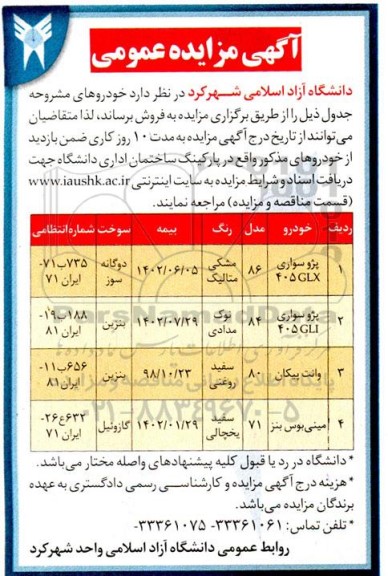 آگهی مزایده عمومی
دانشگاه آزاد اسلامی شهرکرد در نظر دارد خودروهای مشروحه
جدول ذیل را از طریق برگزاری مزایده به فروش برساند، لذا متقاضیان
می‌توانند از تاریخ درج آگهی مزایده به مدت ۱۰ روز کاری ضمن بازدید
از خودروهای مذکور واقع در پارکینگ ساختمان اداری دانشگاه جهت
دریافت اسناد و شرایط مزایده به سایت اینترنتی www.iaushk.ac.ir
(قسمت مناقصه و مزایده) مراجعه نمایند.
ردیف خودرو مدل رنگ بیمه سوخت شماره انتظامی
۱ پژو سواری ۴۰۵ GLX ۸۶ مشکی متالیک ۱۴۰۲/۰۶/۰۵ دوگانه سوز ۷۳۵ب۷۱- ایران ۷۱
۲ پژو سواری ۴۰۵ GLI ۸۴ نوک مدادی ۱۴۰۲/۰۷/۲۹ بنزین ۱۸۸ب۱۹- ایران ۸۱
۳ وانت پیکان ۸۰ سفید روغنی ۹۸/۱۰/۲۳ بنزین ۶۵۶ب۱۱- ایران ۸۱
۴ مینی‌بوس بنز ۷۱ سفید یخچالی ۱۴۰۲/۰۱/۲۹ گازوئیل ۶۳۳ع۲۶- ایران ۷۱
ParsNamadData
پایگاه اطلاع رسانی مناقصه و مزایده
۰۲۱-۸۸۳۴۹۶۷۰-۵
*دانشگاه در رد یا قبول کلیه پیشنهادهای واصله مختار می‌باشد.
*هزینه درج آگهی مزایده و کارشناسی رسمی دادگستری به عهده
برندگان مزایده می‌باشد.
*تلفن تماس: ۳۳۳۶۱۰۶۱- ۳۳۳۶۱۰۷۵
روابط عمومی دانشگاه آزاد اسلامی واحد شهرکرد